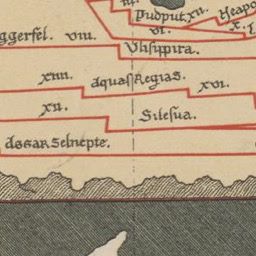 Pudput. xii.
vi.
x.
ggerfel. viii.
Vlisippira.
xiiii.
aquas Regias. xvi.
xii.
Silesua.
assar Selnepte.